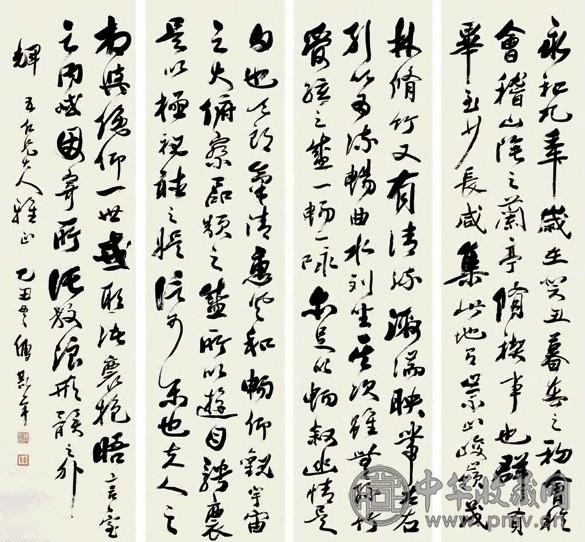 永和九年歲在癸丑暮春之初會於
會稽山陰之蘭亭脩禊事也群賢
畢至少長咸集此地有崇山峻嶺茂
林脩竹又有清流激湍映帶左右
引以為流觴曲水列坐其次雖無絲竹
管絃之盛一觴一詠亦足以暢敘幽情是
日也天朗氣清惠風和暢仰觀宇宙
之大俯察品類之盛所以遊目騁懷
足以極視聽之娛信可樂也夫人之
相與俯仰一世或取諸懷抱晤言一室
之內或因寄所託放浪形骸之外
輝 大人雅正 乙丑 傅斯年
中华收藏网